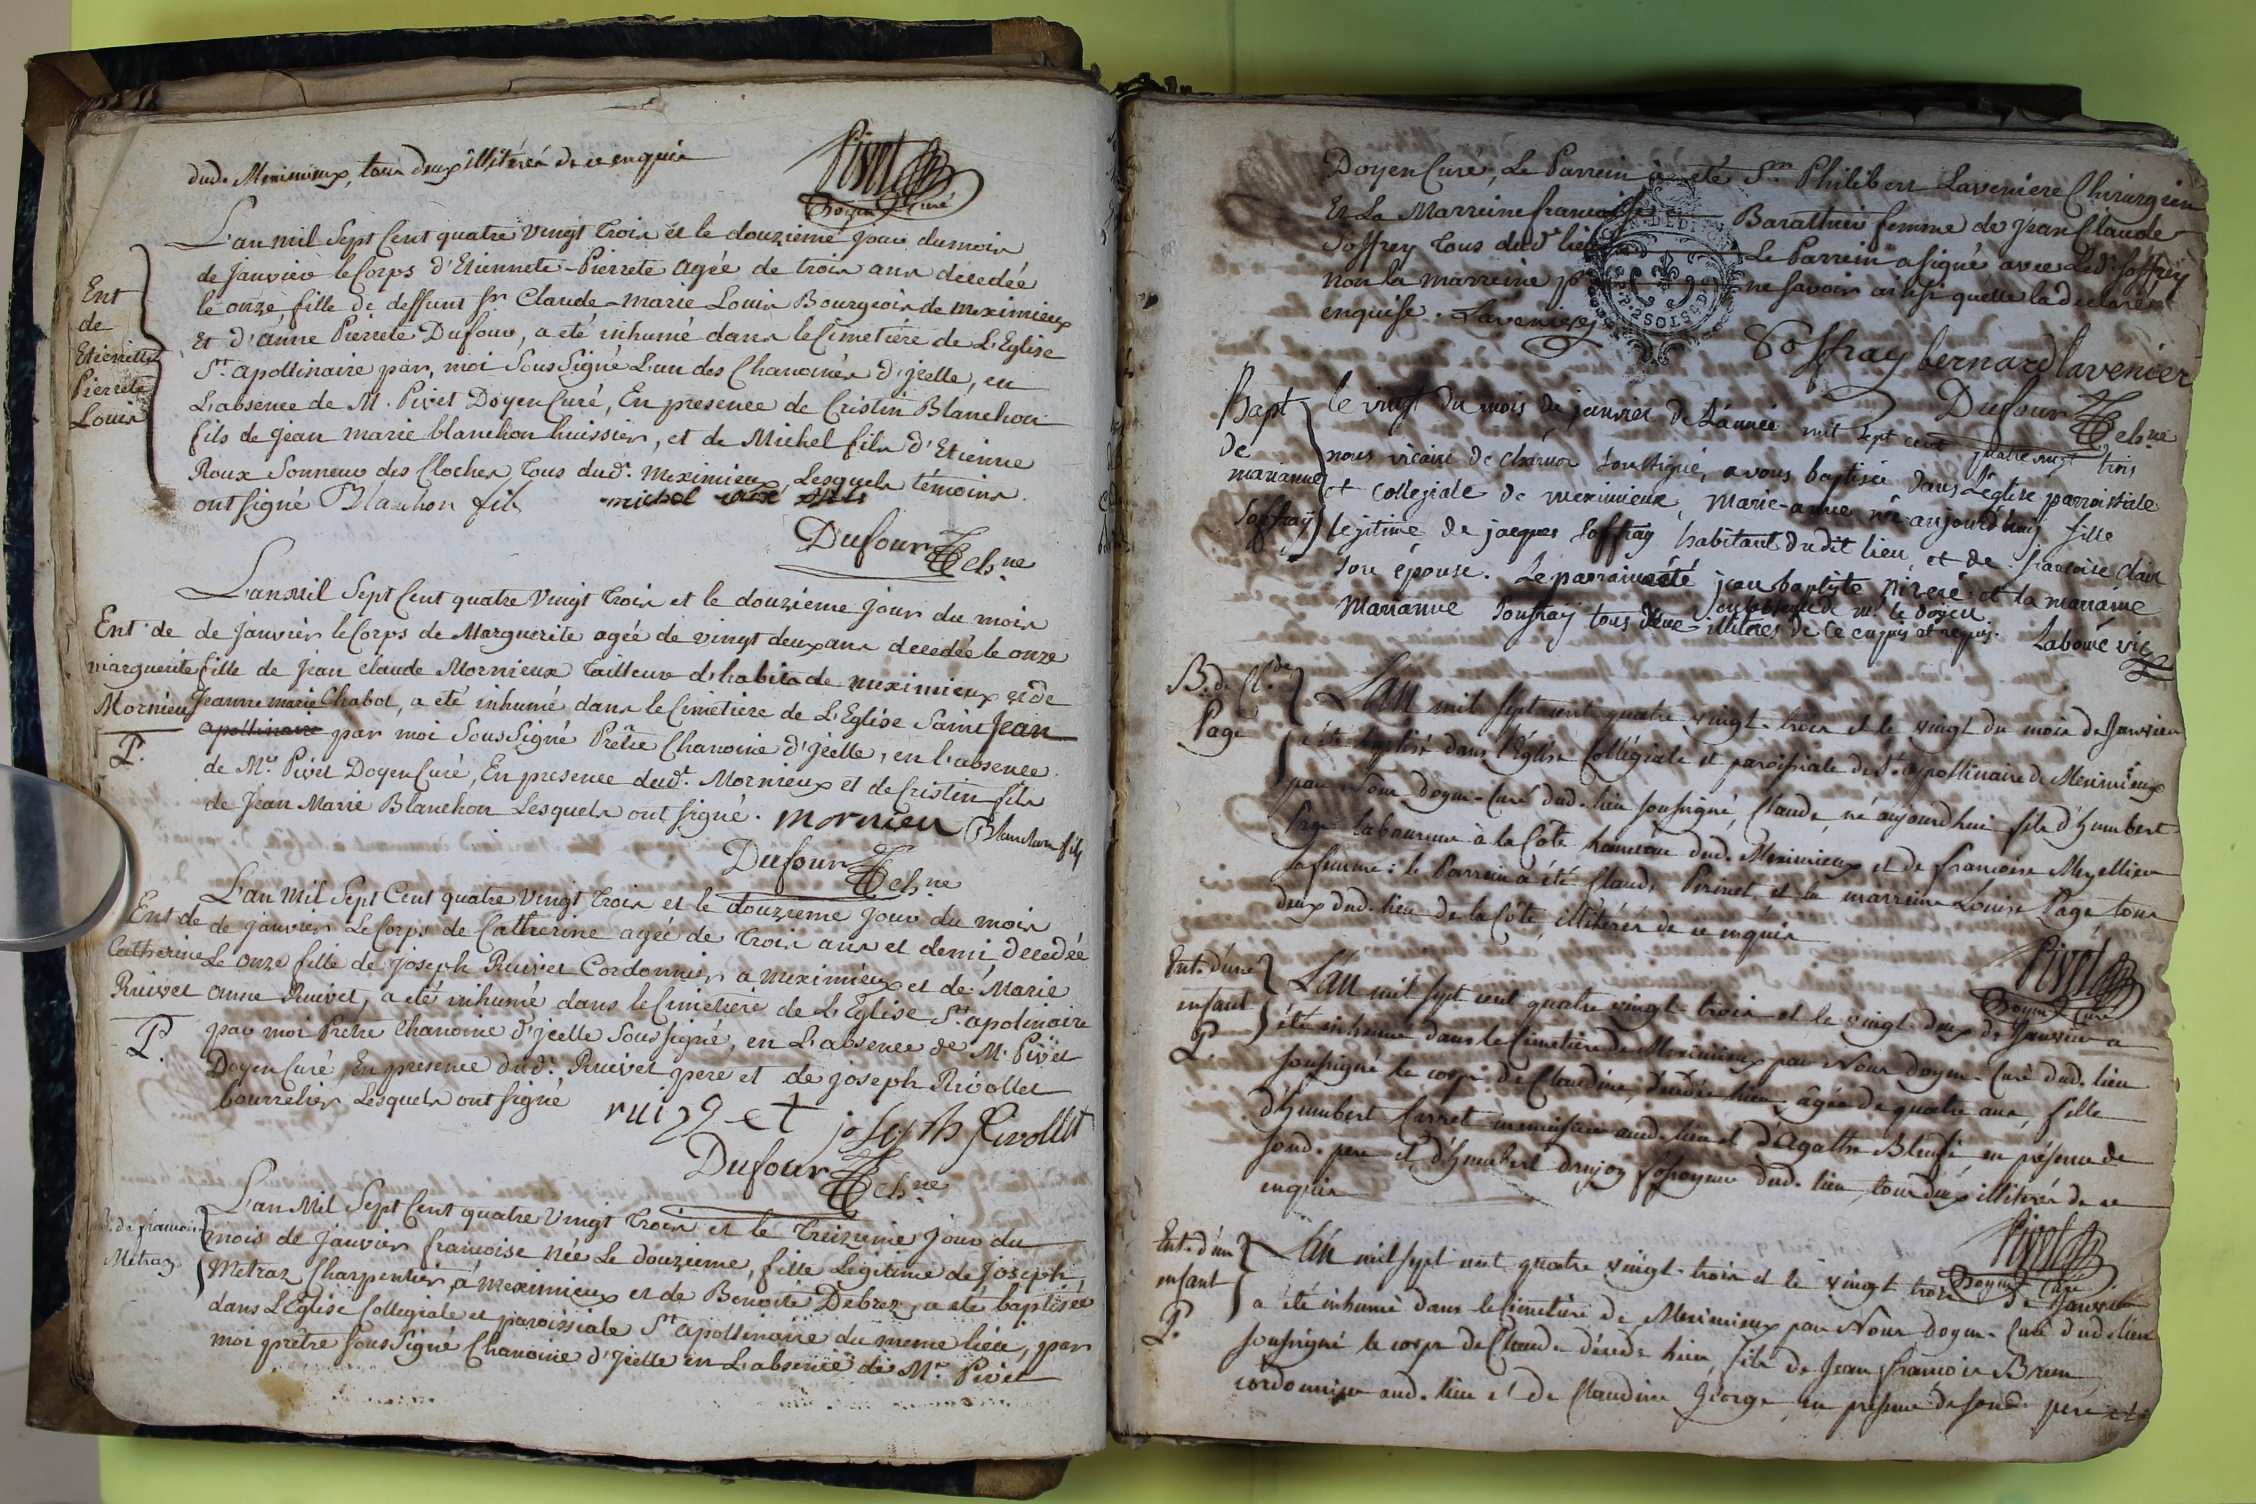 dud. Meximieux, tous deux illitérés de ce enquis
Pivet
Doyen Curé
L'an mil Sept Cent quatre vingt trois et le douzieme jour du mois
de janvier le Corps d'Etiennete-Pierrete agée de trois ans decedée
le onze, fille de deffunt Sr. Claude-marie Louis Bourgeois de meximieux
Et d'anne Pierrete Dufour, a eté inhumé dans le Cimetière de L'Eglise
St. apollinaire par, moi SousSigné L'un des Chanoines d'jcelle, en
L'absence de M. Pivet Doyen Curé, En presence de Cristin Blanchon
fils de jean marie blanchon huissier, et de Michel fils d'Etienne
Roux Sonneur des Cloches Tous dud. meximieux, Lesquels témoins
ont signé Blanchon fils michel roux fils
Ent
de
Etiennette
Pierrete
Louis
Dufour chne
L'an mil Sept Cent quatre Vingt Trois et le douzieme jour du mois
de janvier le Corps de Marguerite agée de vingt deux ans decedée le onze
fille de jean claude Mornieux Tailleur d'habits de meximieux et de
Jeanne marie Chabot, a eté inhumé dans le Cimetiere de L'Eglise Saint Jean
apollinaire par moi SousSigné Prêtre Chanoine d'jcelle, en l'absence
de Mr. Pivet Doyen Curé, En presence dudt. Mornieux et de Cristin fils
de Jean Marie Blanchon Lesquels ont signé. mornieu Blanchon fils
Ent. de
marguerite
Mornieu
P.
Dufour chne
L'an Mil Sept Cent quatre Vingt Trois et le douzieme jour du mois
de janvier Le Corps de Catherine agée de Trois ans et demi decedée
Le onze fille de joseph Ruivet Cordonnier a meximieux et de Marie
anne Ruivet, a eté inhumé dans le Cimetiere de L'Eglise St. apolinaire
par moi Prêtre Chanoine d'jcelle Soussigné, en L'absence de M. Pivet
Doyen Curé, En presence dud. Ruivet pere et de joseph Rivollet
bourrelier Lesquels ont signé
Ent de
Catherine
Ruivet
P.
joseph Rivollet
Dufour chne
L'an Mil Sept Cent quatre Vingt Trois et le Treizieme jour du
mois de janvier françoise née Le douzieme, fille Legitime de Joseph
Metraz Charpentier à meximieux et de Benoite Debrez, a eté baptisée
dans L'Eglise Collegiale et paroissiale St. apollinaire du meme lieu, par
moi prêtre SousSigné Chanoine d'jcelle en L'absence de Mr. Pivet
de francoise
Metraz
Doyen Curé, Le Parrein a eté Sr. Philibert Laveniere Chirurgien
Et La Marreine francoise Barathier femme de Jean Claude
Soffrey Tous dudt. lieu Le Parrein a signé avec Led. Soffrey
non la marreine pr ne savoir ainsi quelle la declaré
enquise. Laveniere
Soffray bernard lavenier
Dufour chne
Bapt
de
marianne
Soffray
le vingt du mois de janvier de L'année mil sept cent quatre vingt trois
nous vicaire de charnoz soussigné, avons baptisée dans L'église parroissiale
et collegiale de meximieux, Marie-anne née aujourd'huy fille
légitime de jacques Soffray habitant dudit lieu, et de francoise clair
son épouse. Le parrain a été jean baptiste et la marraine
Marianne Souffray tous deux illitéres de ce enquis et requis.
en l'absence de mr. le doyen Laboué vic
B. de Clde
Page
L'an mil sept cent quatre vingt-trois et le vingt du mois de Janvier
a été baptisé dans l'Eglise Collégiale et paroissiale de St. apollinaire de Meximieux
par Nous Doyen-Curé dud. lieu soussigné, Claude, né aujourd'hui fils d'humbert
Page laboureur à la Côte hameau dud. Meximieux et de francoise
sa femme: le Parrein a été Claude Perinet et la marreine Louise Page tous
deux dud. lieu de la Côte, illitérés de ce enquis
Pivet
Doyen Curé
Ent. d'une
enfant
P.
L'an mil sept cent quatre vingt-trois et le vingt deux de Janvier a
été inhumé dans le Cimetière de Meximieux par Nous Doyen-Curé dud. lieu
soussigné le corps de Claudine, décédée hier, âgée de quatre ans, fille
d'humbert Carret menuisier aud. lieu et d'Agathe en présence de
sond. pere et d'humbert dud. lieu, tous deux illitérés de ce
enquis
Pivet
Doyen Curé
Ent. d'un
enfant
P.
L'an mil sept cent quatre vingt-trois et le vingt trois de Janvier
a été inhumé dans le Cimetière de Meximieux par Nous Doyen-Curé dud. lieu
soussigné le corps de Claude décédé hier, fils de Jean francois Brun
cordonnier aud. lieu et de Claudine George, en présence de sond. pere et